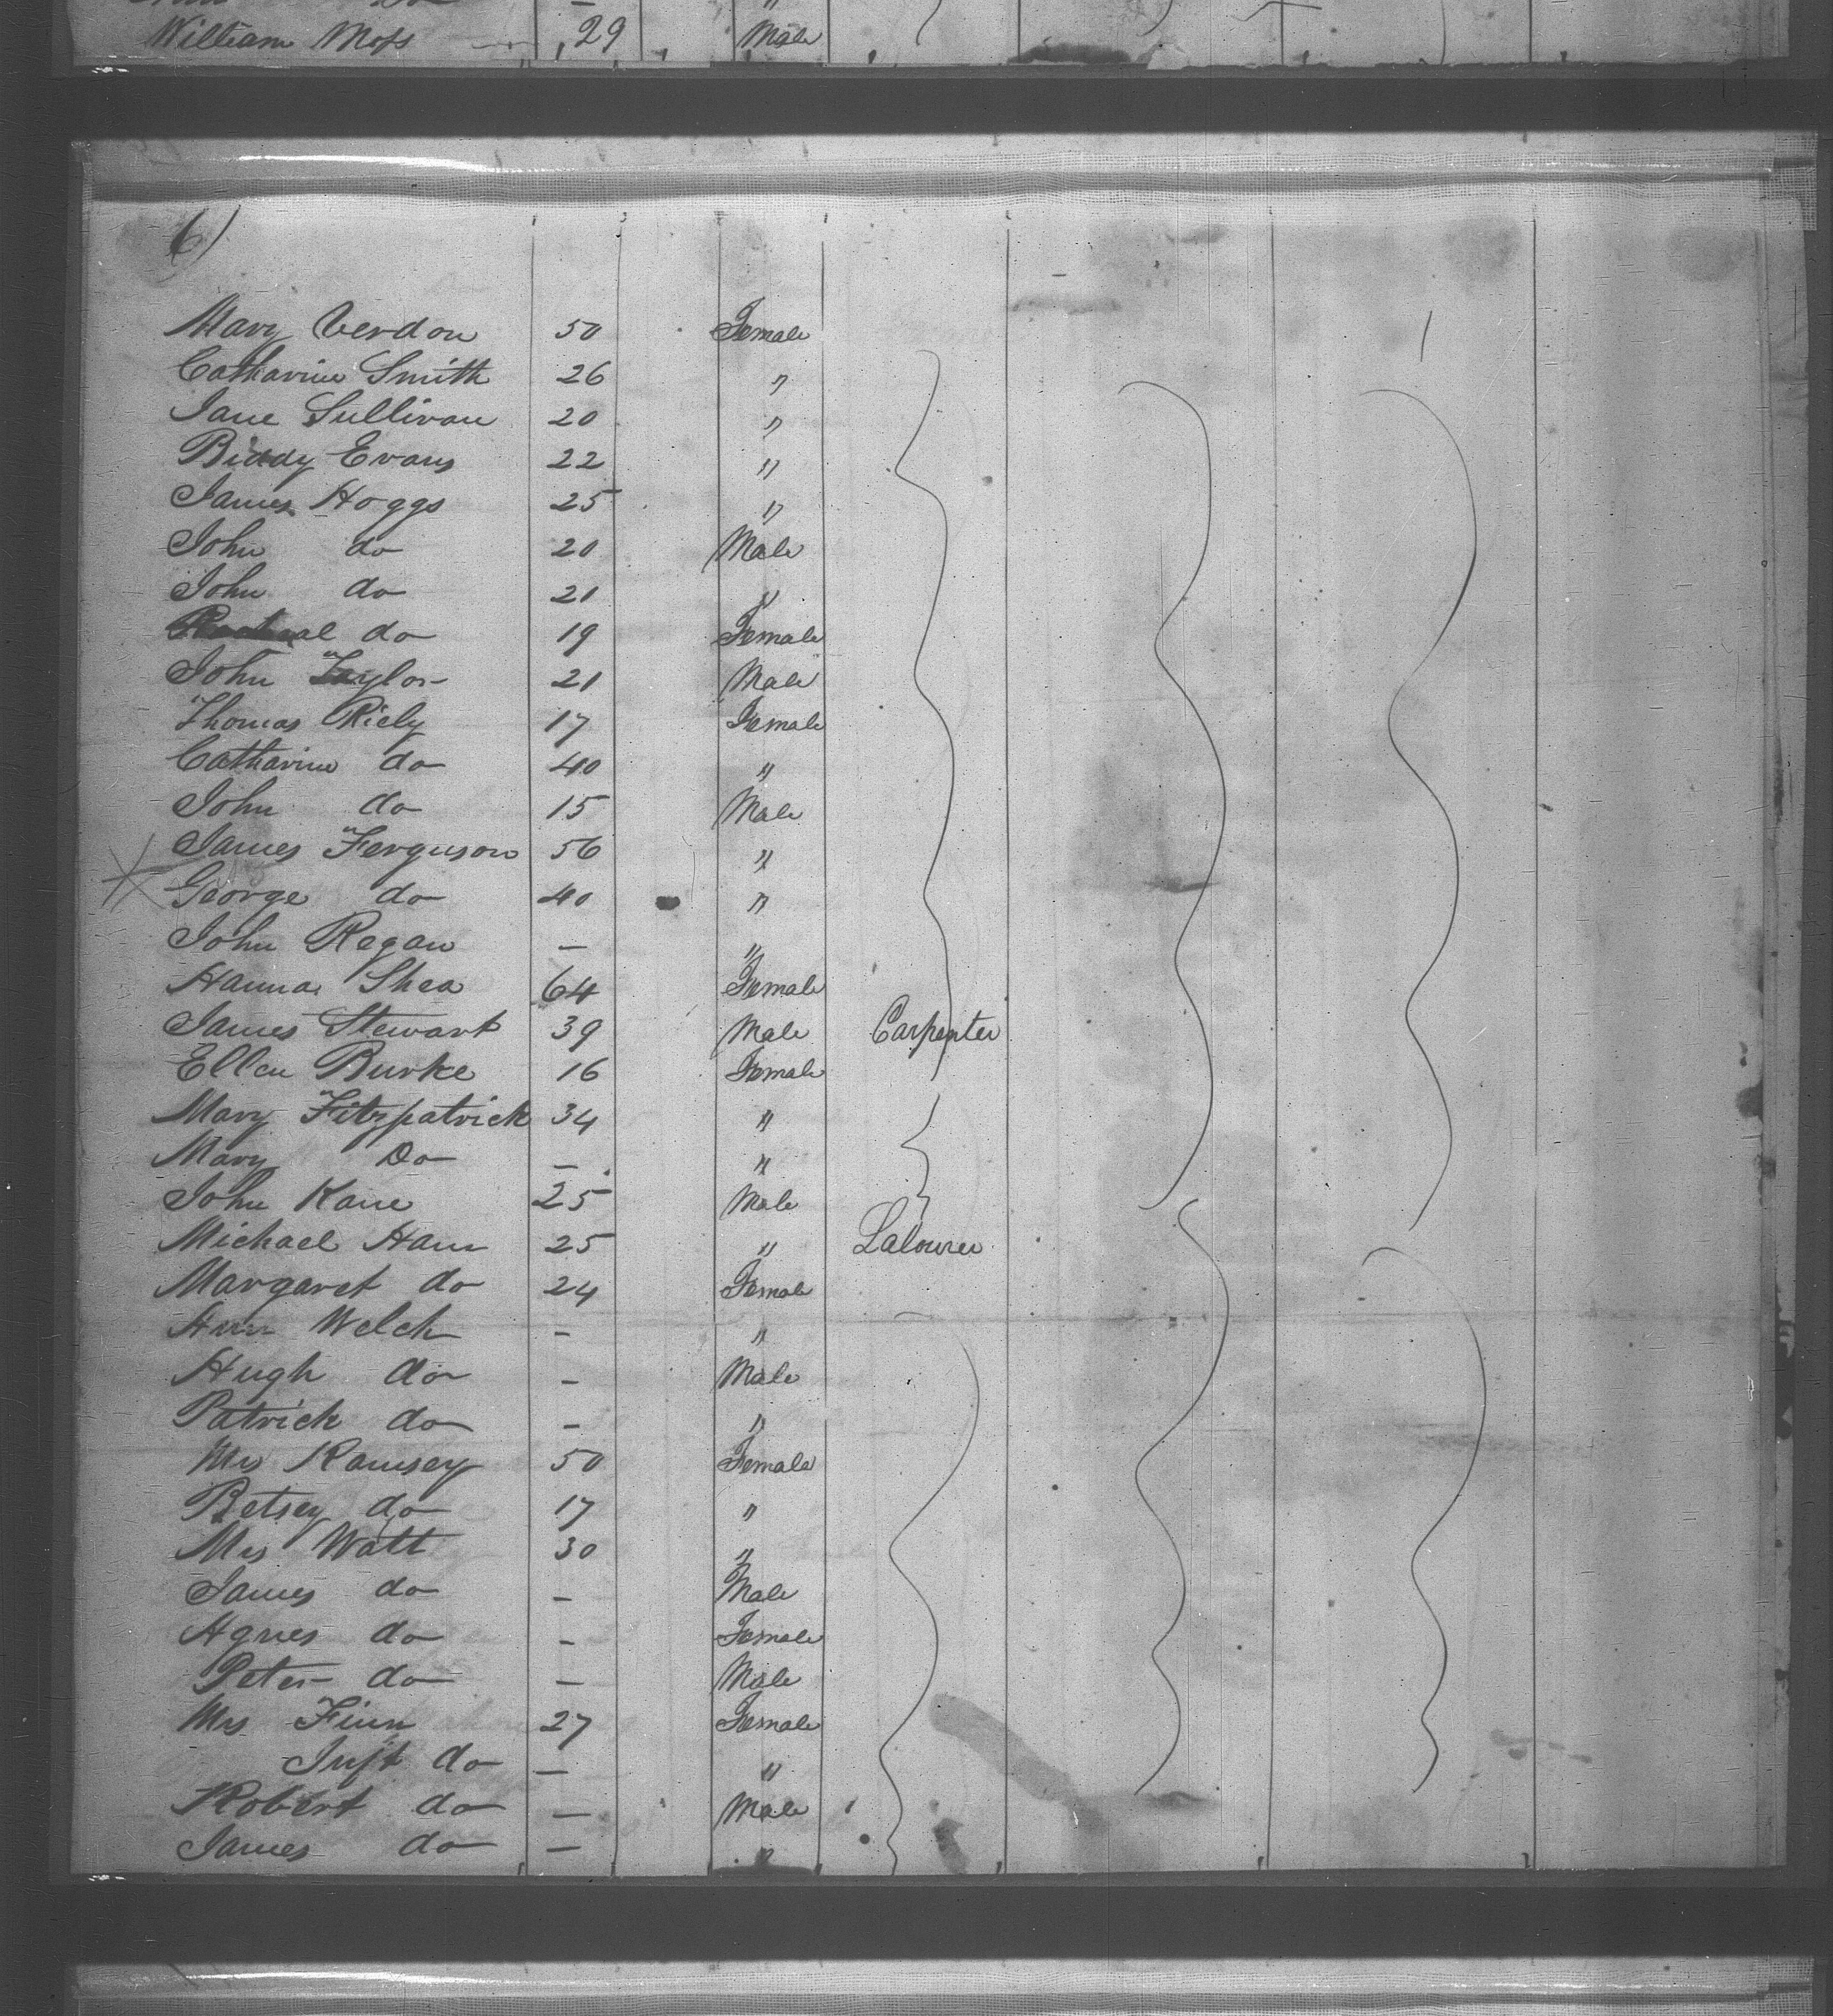 William Moss — 29 Male
6)
Mary Verdon 50 Female
Catharine Smith 26 "
Jane Sullivan 20 "
Biddy Evans 22 "
James Hoggs 25 "
John do 20 Male
John do 21 "
Racheal do 19 Female
John Taylor 21 Male
Thomas Riely 17 Female
Catharine do 40 "
John do 15 Male
James Ferguson 56 "
George do 40 "
John Regan — "
Hanna Shea 64 Female
James Stewart 39 Male Carpenter
Ellen Burke 16 Female
Mary Fitzpatrick 34 "
Mary Do — "
John Kane 25 Male
Michael Ham 25 " Labourer
Margaret do 24 Female
Ann Welch — "
Hugh do — Male
Patrick do — "
Mrs Ramsey 50 Female
Betsey do 17 "
Mrs Watt 30 "
James do — Male
Agnes do — Female
Peter do — Male
Mrs Finn 27 Female
Inft do — "
Robert do — Male
James do — "